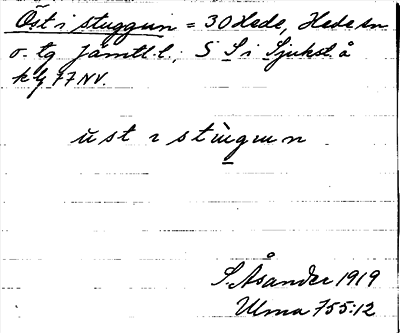 Öst i stuggun = 30 Hede, Hede sn
o. tg Jämtl. l., S S i Sjukst å
k bl 77 NV.
ŭst ı stùgun
S. Åsander 1919
Ulma 755:12